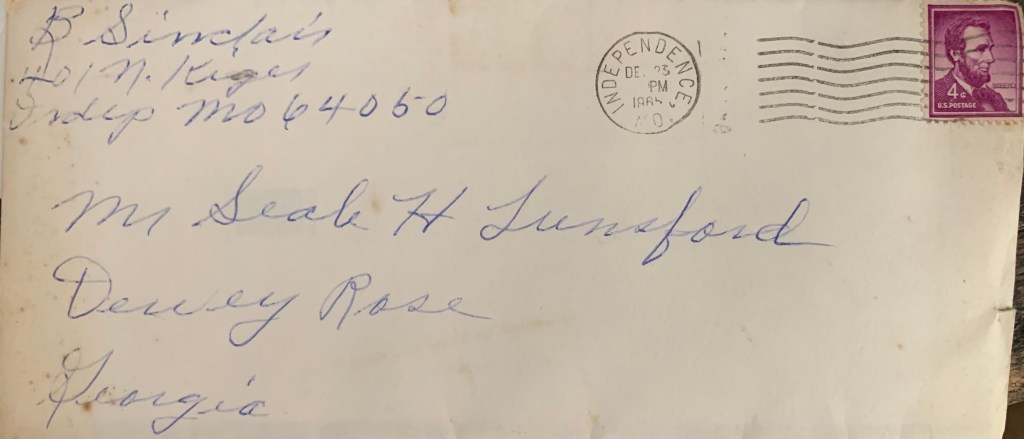 B Sinclair
N. Kiger
Indep Mo 64050
INDEPENDENCE, MO.
PM
4¢
U.S. POSTAGE
Mr Seab H Lunsford
Dewey Rose
Georgia